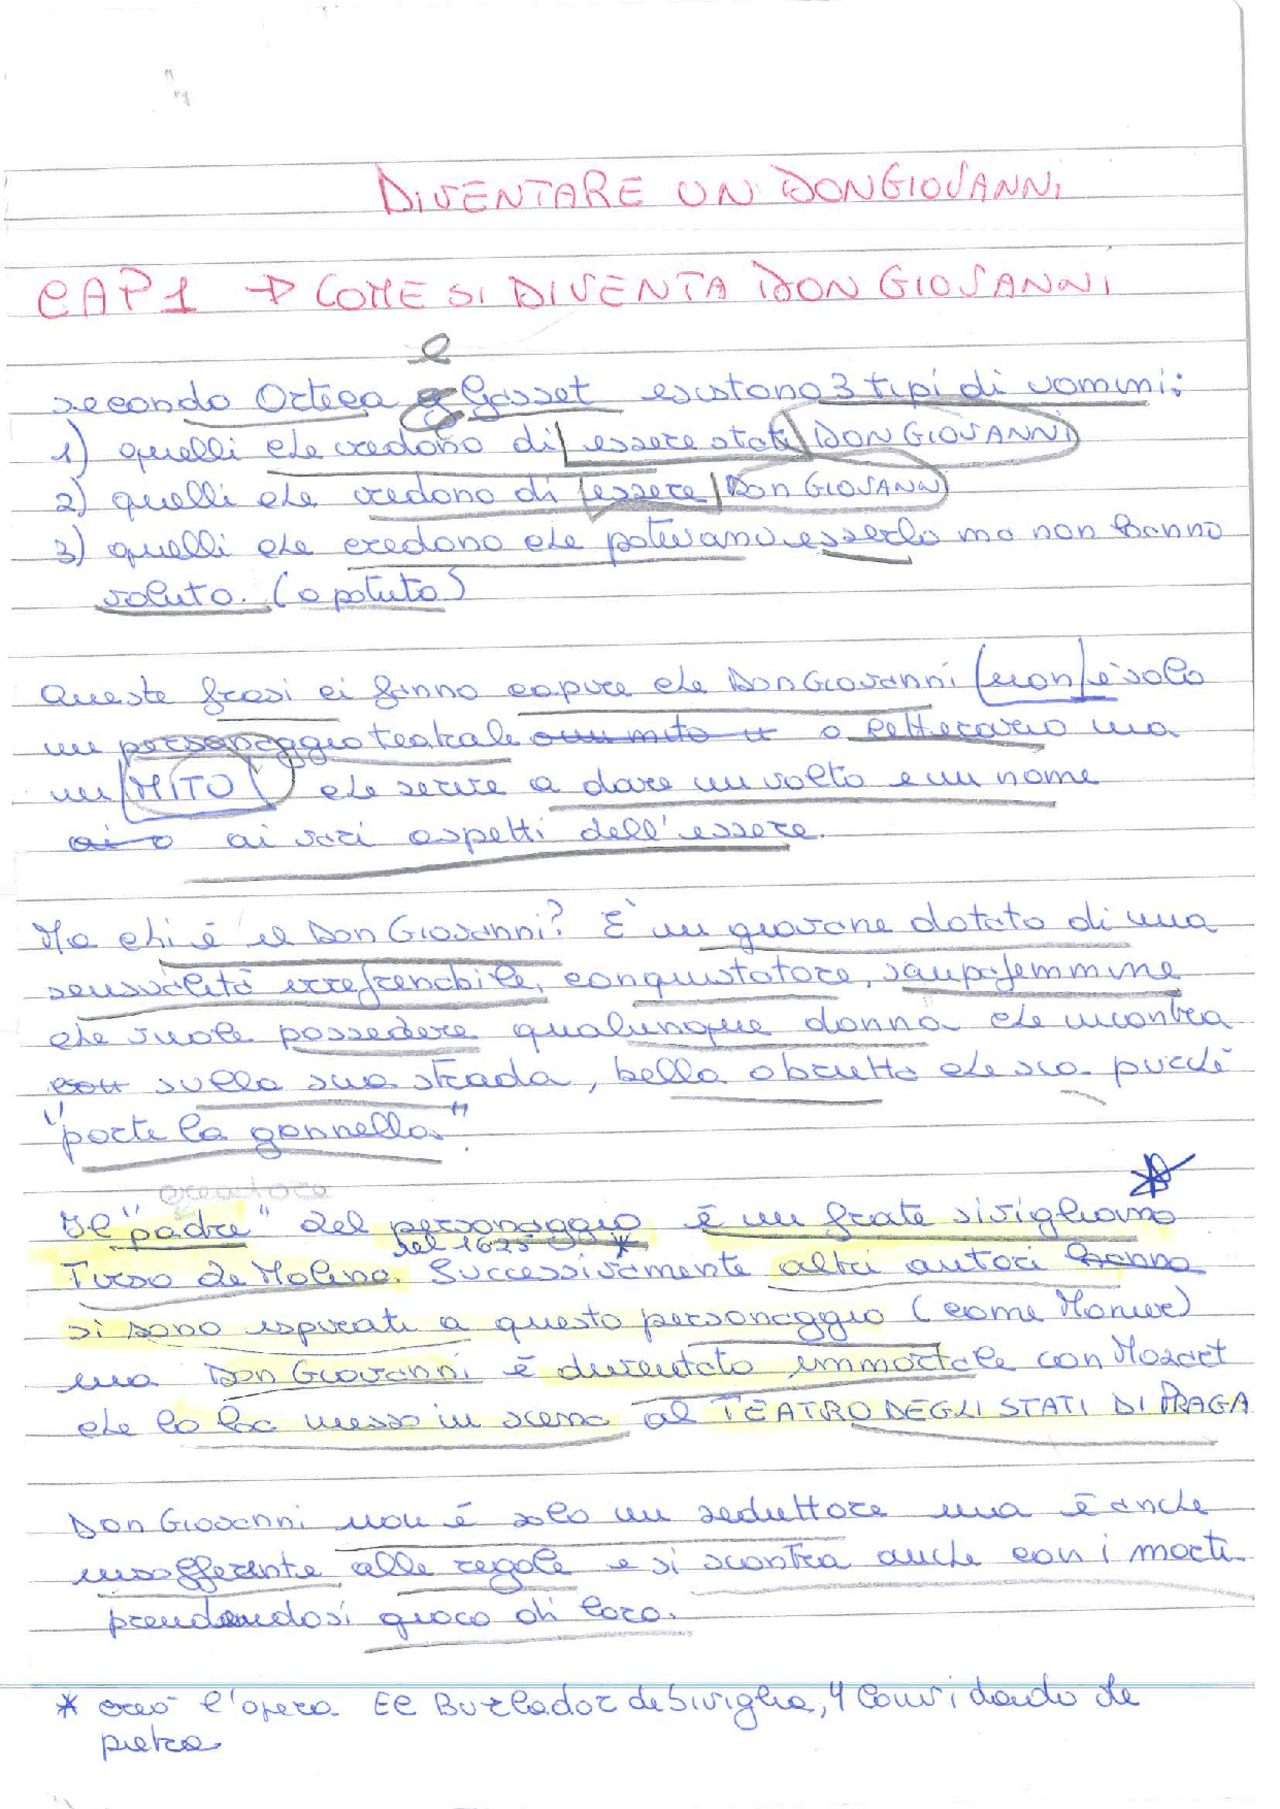 DIVENTARE UN DON GIOVANNI
CAP 1 → COME SI DIVENTA DON GIOVANNI
secondo Ortega e Gasset esistono 3 tipi di uomini:
1) quelli che credono di essere stati DON GIOVANNI
2) quelli che credono di essere DON GIOVANNI
3) quelli che credono che potevano esserlo ma non hanno
voluto. (o potuto)
Queste frasi ci fanno capire che Don Giovanni non è solo
un personaggio teatrale o un mito o letterario ma
un MITO che serve a dare un volto e un nome
ai vari aspetti dell'essere.
Ma chi è il Don Giovanni? È un giovane dotato di una
sensualità irrefrenabile, conquistatore, sciupafemmine
che vuole possedere qualunque donna che incontra
con sulla sua strada, bella o brutta che sia purché
"porti la gonnella".
creatore
Il "padre" del personaggio è un frate sivigliano *
nel 1625 *
Tirso de Molina. Successivamente altri autori hanno
si sono ispirati a questo personaggio (come Moliere)
ma Don Giovanni è diventato immortale con Mozart
che lo ha messo in scena al TEATRO DEGLI STATI DI PRAGA
Don Giovanni non è solo un seduttore ma è anche
insofferente alle regole e si scontra anche con i morti
prendendosi gioco di loro.
* creò l'opera El Burlador de Siviglia, y Convidando de
pietra